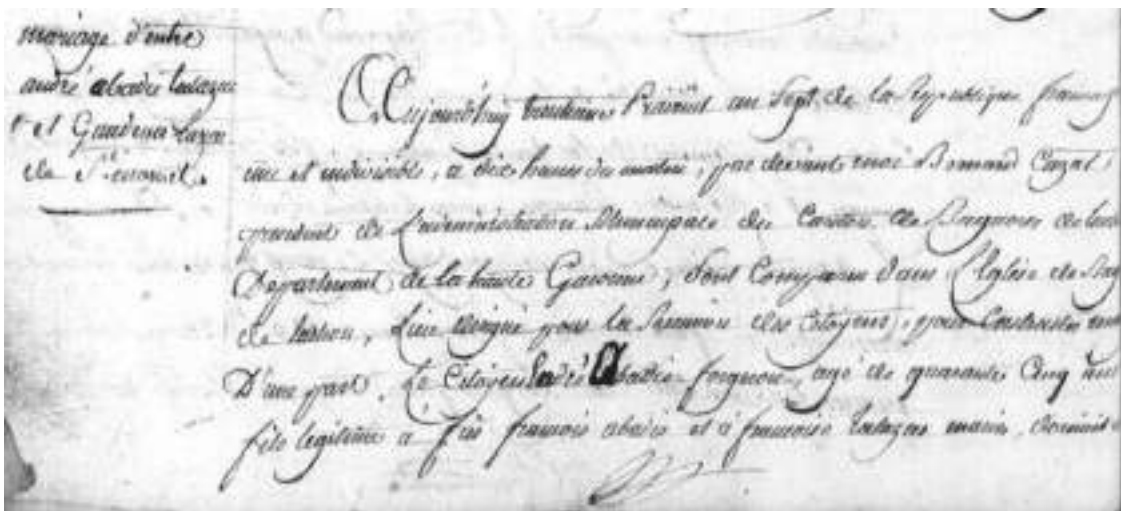 mariage d'entre
andré abadie
et Gaudence
de
Aujourd'huy Prairial an Sept de la Republique française
une et indivisible, a dix heures du matin, par devant moi Bernard Cazat
president de L'administration Municipale du Canton de Bagneres de
Departement de la haute Garonne, Sont Comparus dans L'Eglise de
de Luchon, Lieu designé pour la Reunion des Citoyens, pour Contracter
D'une part, Le Citoyen abadie agé de quarante Cinq ans
fils legitime a feu francois abadie et a francoise mariés,